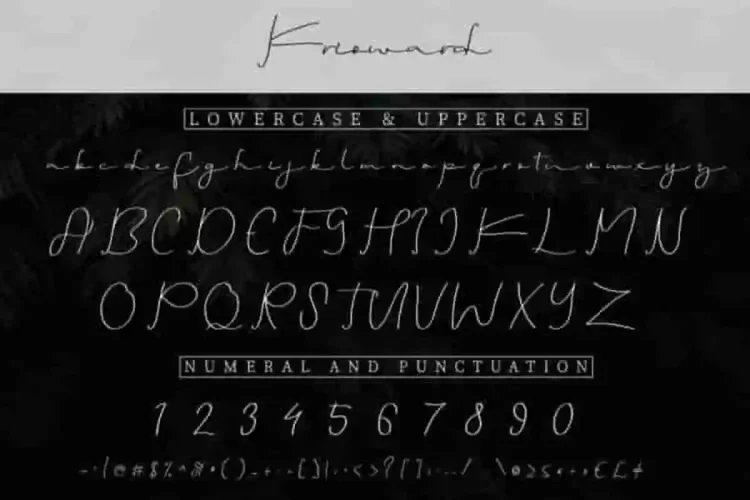 Krioward
LOWERCASE & UPPERCASE
a b c d e f g h i j k l m n o p q r s t u v w x y z
A B C D E F G H I J K L M N
O P Q R S T U V W X Y Z
NUMERAL AND PUNCTUATION
1 2 3 4 5 6 7 8 9 0